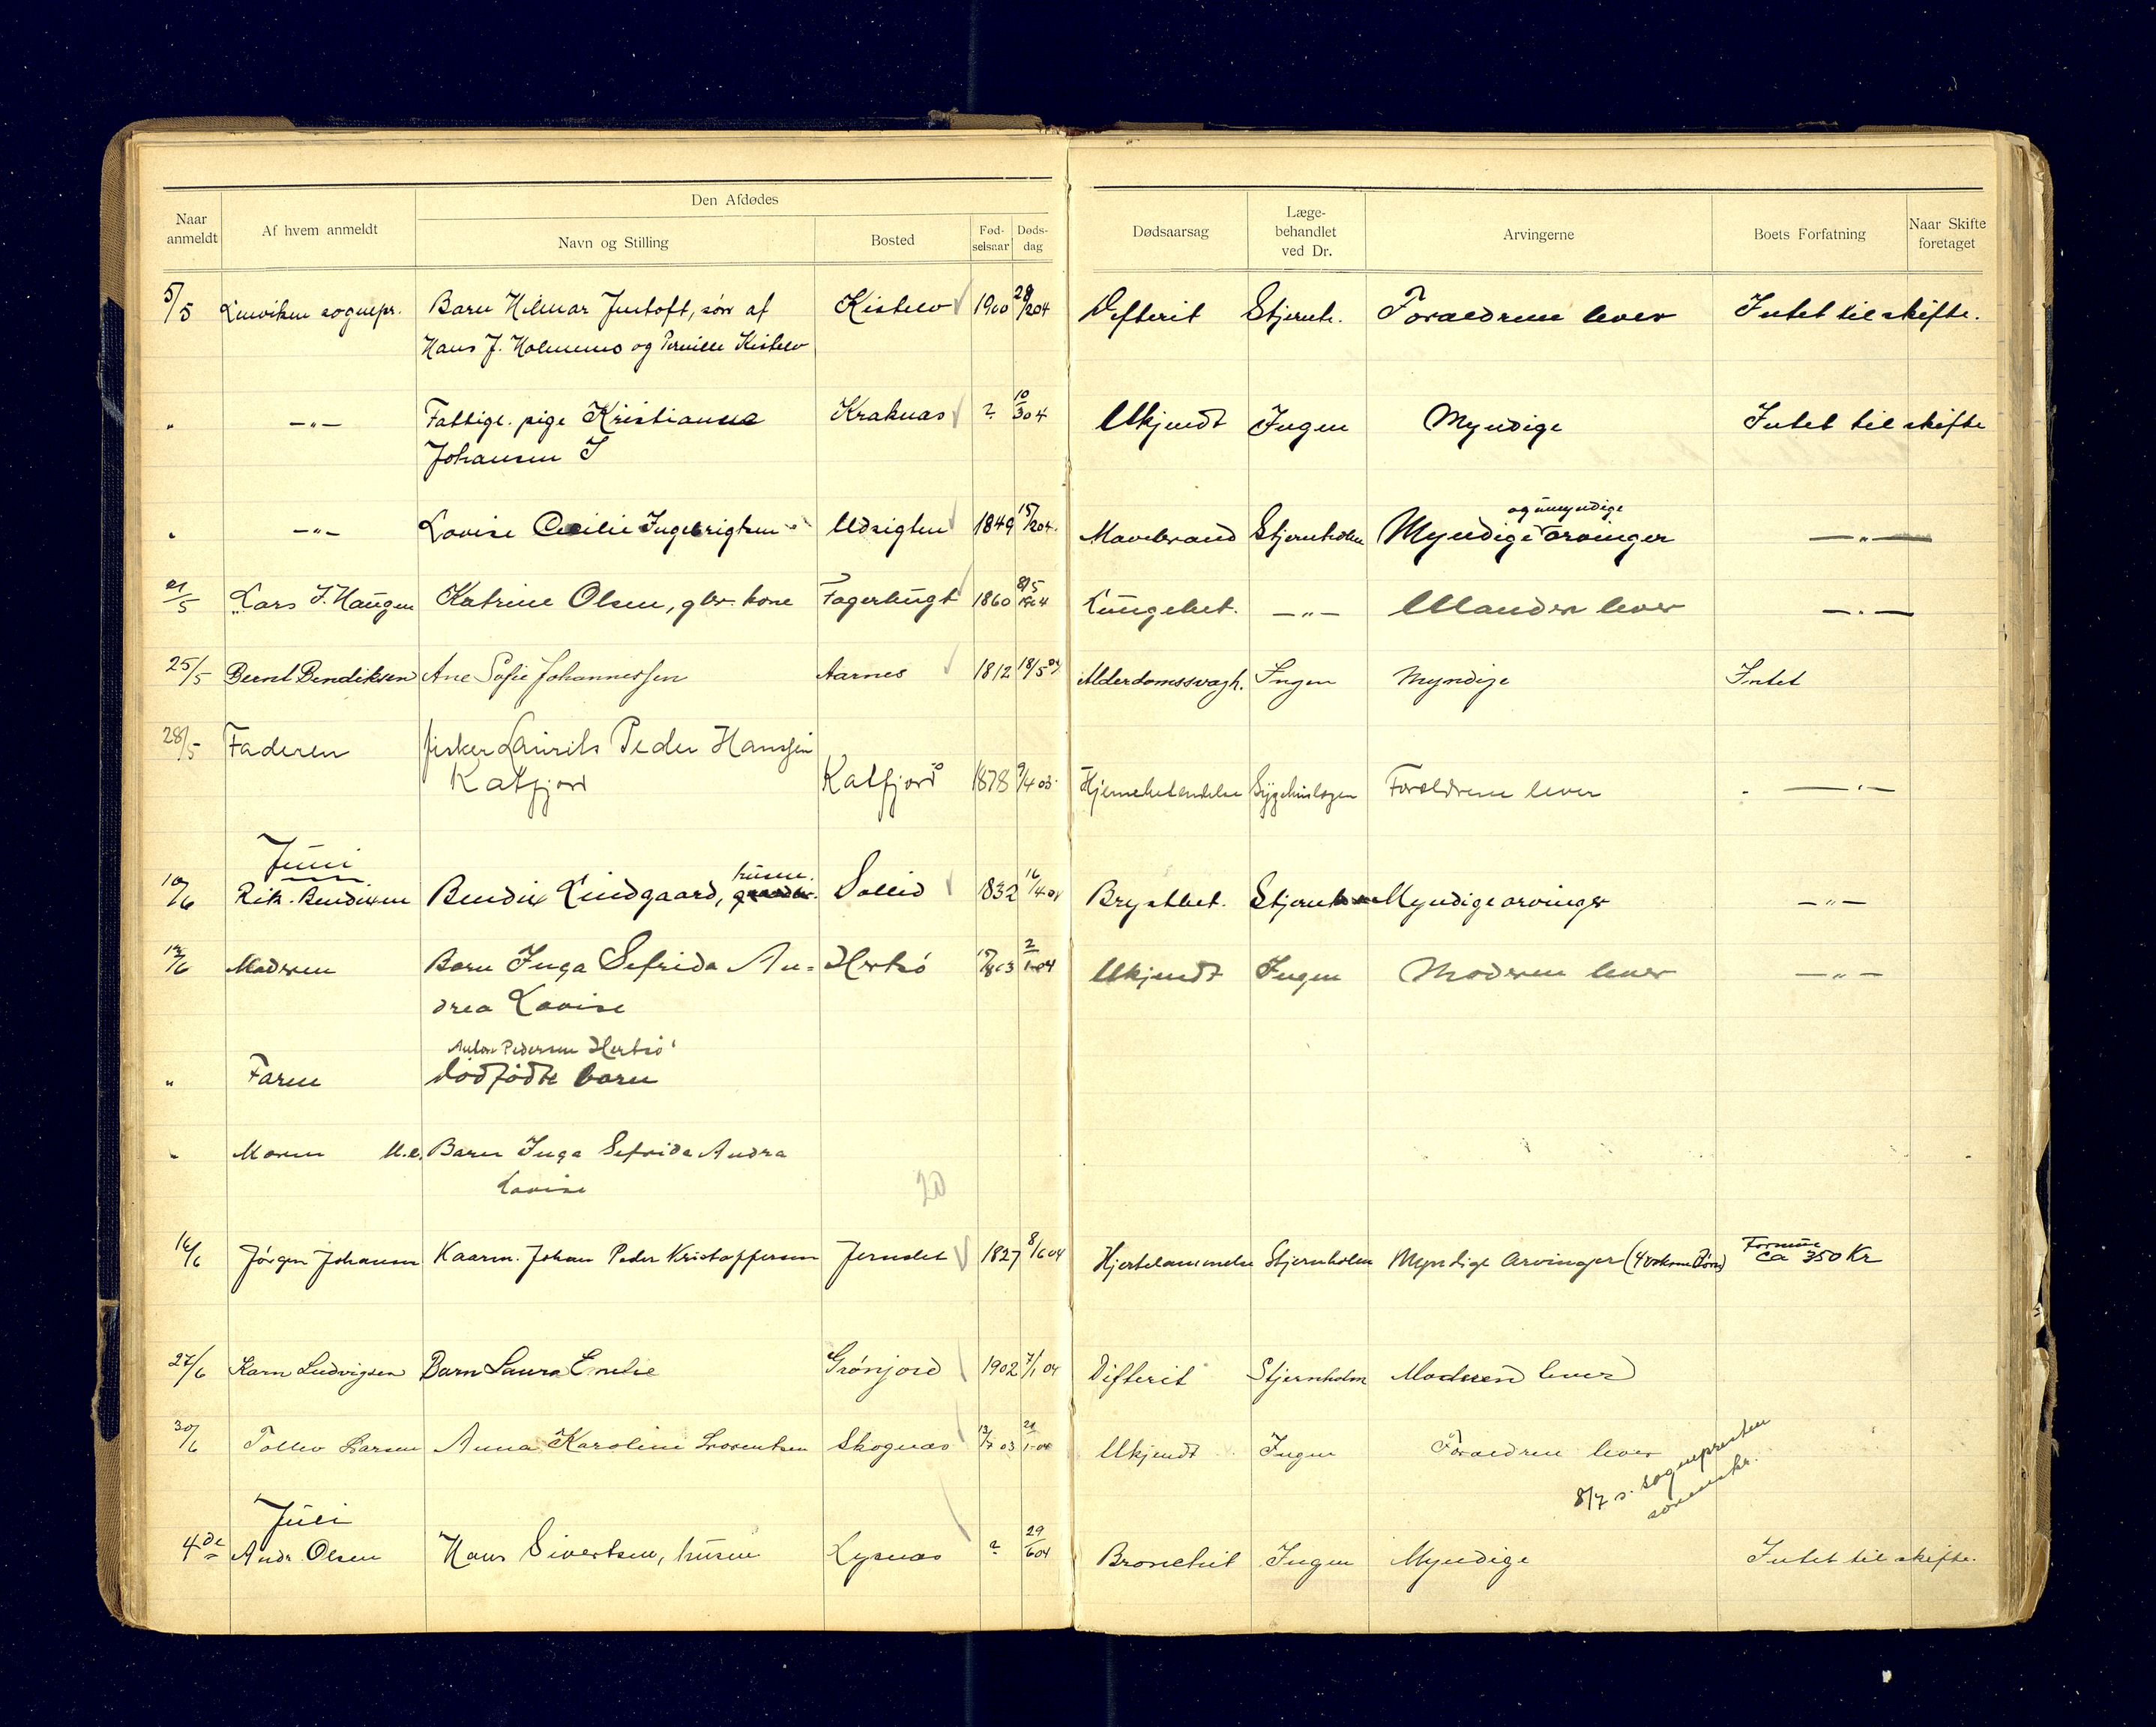 Den Afdødes
Naar anmeldt
Af hvem anmeldt
Navn og Stilling
Bosted
Fød-selsaar
Døds-dag
Dødsaarsag
Læge-behandlet ved Dr.
Arvingerne
Boets Forfatning
Naar Skifte foretaget
5/5 Lenviken sognepr. Barn Hilmar Jentoft, søn af Kistelv 1900 28/2 04 Difterit Stjernh. Foraeldrene lever Intet til skifte.
Hans J. Holmemo og Pernille Kistelv
" —"— Fattigl. pige Kristianna Kraknæs ? 10/3 04 Ukjendt Ingen Myndige Intet til skifte
Johansen
og umyndige
" —"— Lovise Cecilie Ingebrigtsen Udsigten 1849 15/2 04. Mavebrand Stjernholm Myndige arvinger —"—
21/5 Lars J. Haugen Katrine Olsen, gbr. kone Fagerbugt 1860 8/5 04 Lungebet. —"— Manden lever —"—
25/5 Bernt Bendiksen Ane Sofie Johannessen Aarnes 1812 18/5 04 Alderdomssvagh. Ingen Myndige Intet
28/5 Faderen fisker Laurits Peder Hanssen
Katfjord Katfjord 1878 9/4 03 Hjernebetendelse Sygehuslægen Forældrene lever —"—
Juni
husm.
10/6 Rik. Bendixen Bendix Lindgaard, Sollid 1832 16/4 04 Brystbet. Myndige arvinger —"—
12/6 Moderen Barn Inga Sefrida An= Hertsø 2/1 04 Ukjendt Ingen Moderen lever —"—
drea Lovise
Anton Pedersen Hertsø
" Faren dødfødte barn
" Moren Barn Inga Sefrida Andra
Lovise
20
16/6 Jørgen Johansen Kaarm. Johan Peder Kristoffersen Jernslet 1827 8/6 04 Hjertelammelse Stjernholm Myndige Arvinger (4 voksne Børn) Formue
ca 350 Kr
27/6 Karn Ludvigsen Barn Laura Emelie Grønjord 1902 7/1 04 Difterit Stjernholm Moderen lever
30/6 Tollev Larsen Anna Karoline Lorentsen Skognæs Ukjendt Ingen Foraeldrene lever
8/7 s. sognepresten
Juli
4de Andr Olsen Hans Sivertsen, husm Lysnæs ? 29/6 04 Bronchit Ingen Myndige Intet til skifte.